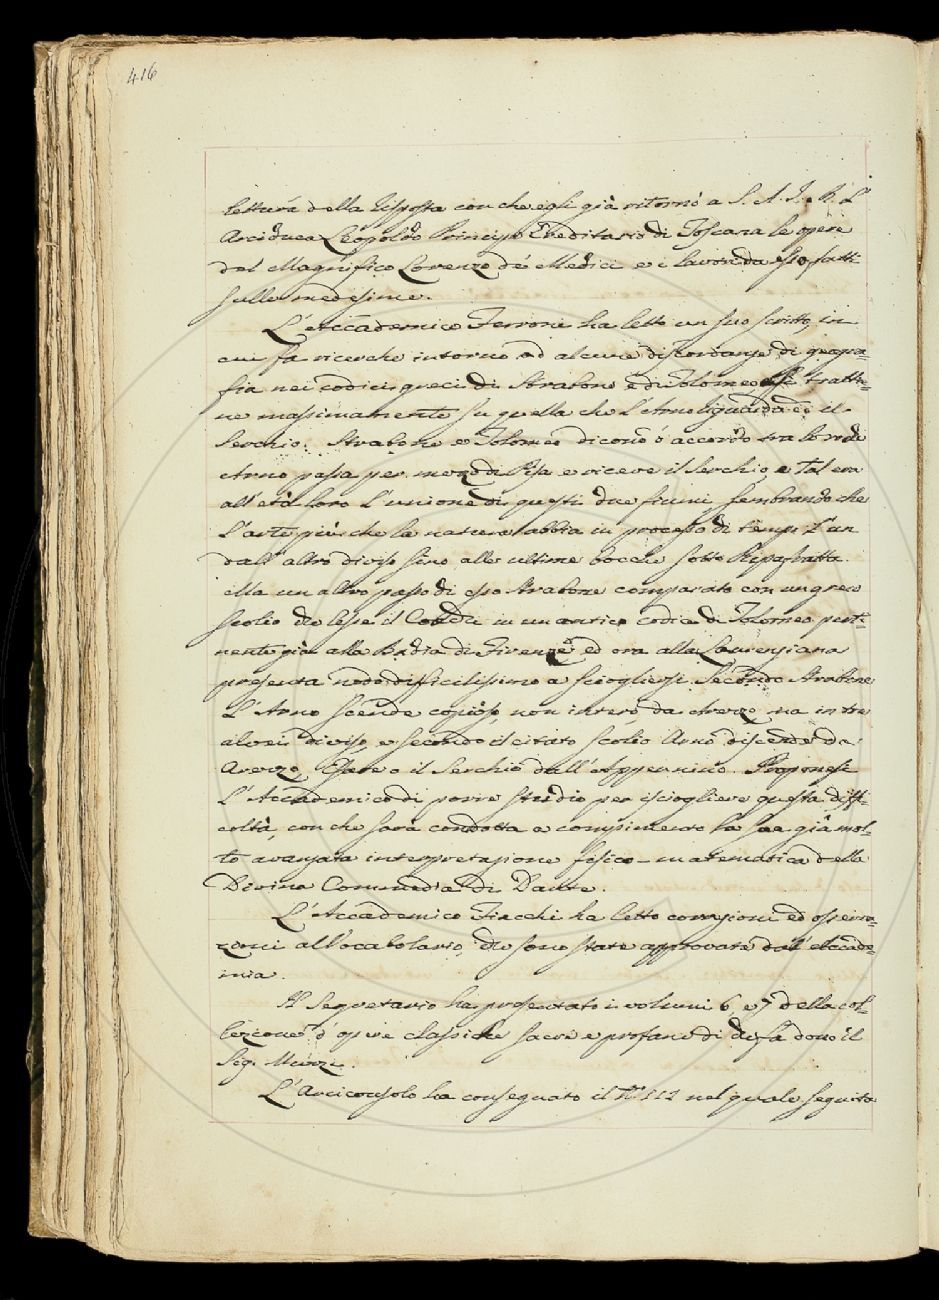 416
lettura della risposta con che egli già ritornò a S. A. I. e R. L'
Arciduca Leopoldo Principe Ereditario di Toscana le opere
del Magnifico Lorenzo de' Medici e i lavori da esso fatti
sulle medesime.
L'Accademico Ferroni ha letto un suo scritto, in
cui fa ricerche intorno ad alcune discordanze di geogra=
fia nei codici greci di Strabone e di Tolomeo, e si tratte=
ne massimamente su quella che l'Arno riguarda ed il
Serchio. Strabone e Tolomeo dicono d'accordo tra loro che
Arno passa per mezzo di Pisa e riceve il Serchio, e tal era
all'età loro l'unione di questi due fiumi, sembrando che
l'arte più che la natura abbia in processo di tempi l'un
dall'altro diviso sino alle ultime bocche sotto Ripafratta.
Ma un altro passo di esso Strabone comparato con un greco
scolio che lesse il Cocchi in un antico codice di Tolomeo perti=
nente già alla Badia di Firenze ed ora alla Laurenziana
presenta nodo difficilissimo a sciogliersi. Secondo Strabone
L'Arno scende copioso, non intero da Arezzo, ma in tre
alvei diviso, e secondo il citato scolio Arno discende da
Arezzo, Esere o il Serchio dall'Appennino. Proponesi
l'Accademico di porre studio per isciogliere questa diffi=
coltà, con che sarà condotta a compimento la sua già mol=
to avanzata interpretazione fisico-matematica della
Divina Commedia di Dante.
L'Accademico Fiacchi ha letto correzioni ed osserva=
zioni al Vocabolario, che sono state approvate dall'Accade=
mia.
Il Segretario ha presentato i volumi 6 e 7 della col=
lezione d'opere classiche sacre e profane di che fa dono il
Sig.
L'Arciconsolo ha consegnato il N.° 112 nel quale seguita